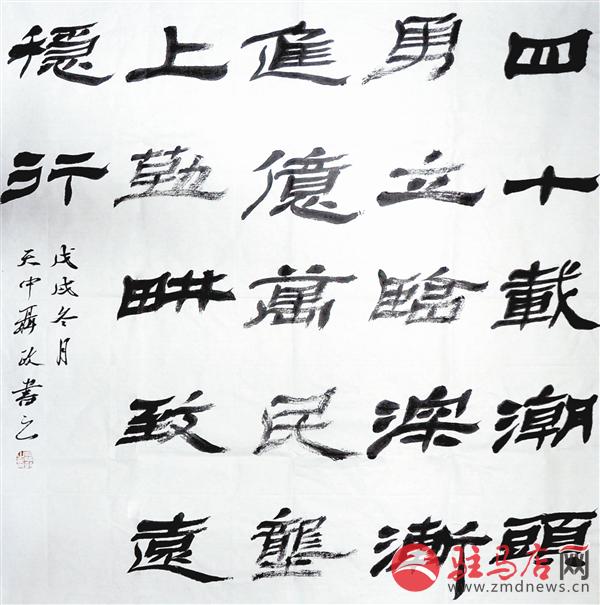 四十載潮頭
勇立臨深漸
進億萬民壟
上勤畊致遠
穩行
戊戌冬月
天中聶政書之
驻马店网
www.zmdnews.cn